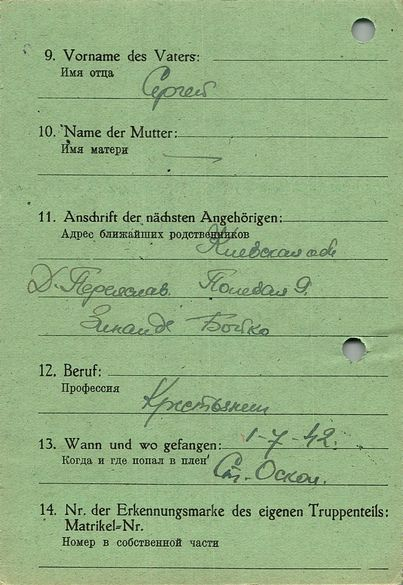 9. Vorname des Vaters:
Имя отца
Сергей
10. Name der Mutter:
Имя матери
—
11. Anschrift der nächsten Angehörigen:
Адрес ближайших родственников
Киевская обл
Д. Переяслав. Полевая 9.
Зинаида Бойко
12. Beruf:
Профессия
Крестьянин
13. Wann und wo gefangen: 1-7-42.
Когда и где попал в плен Ст. Оскол.
14. Nr. der Erkennungsmarke des eigenen Truppenteils:
Matrikel-Nr.
Номер в собственной части